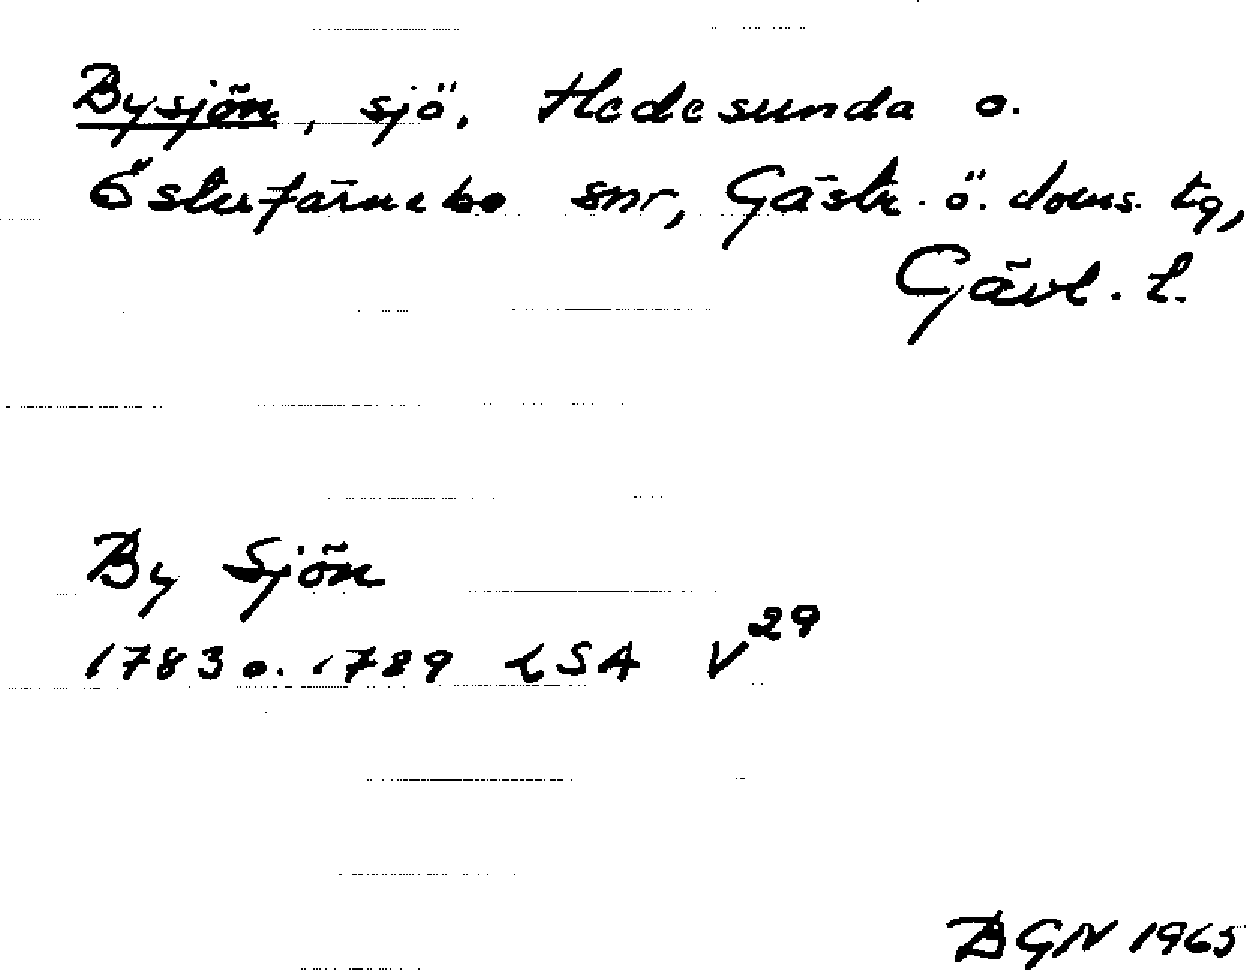 Bysjön, sjö, Hedesunda o.
Österfärnebo snr, Gästr. ö. doms. tg,
Gävl. l.
By Sjön
1783 o. 1789 LSA V29
BGN 1965